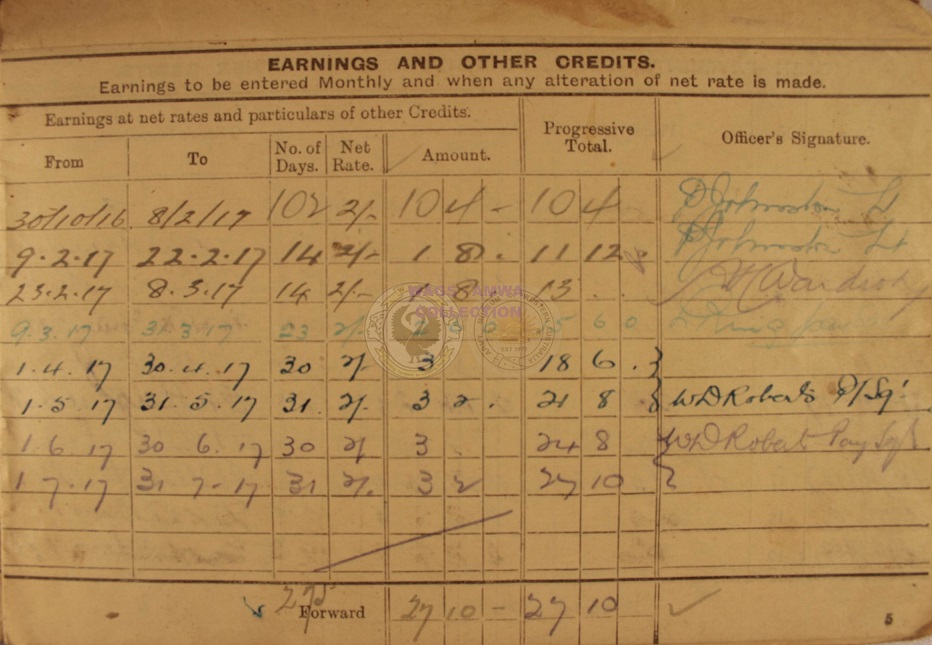 EARNINGS AND OTHER CREDITS.
Earnings to be entered Monthly and when any alteration of net rate is made.
Earnings at net rates and particulars of other Credits. Progressive Total. Officer's Signature.
From To No. of Days. Net Rate. Amount.
30/10/16 8/2/17 102 2/- 10 4 - 10 4 D Johnston Lt
9.2.17 22.2.17 14 2/- 1 8 . 11 12 D Johnston Lt
23.2.17 8.3.17 14 2/- 1 8 . 13 . .
9.3.17 31.3.17 23 2/- 2 6 0 15 6 0
1.4.17 30.4.17 30 2/- 3 18 6 .
1.5.17 31.5.17 31. 2/- 3 2 . 21 8 WD Roberts P/Sgt
1 6 17 30 6.17 30 2/- 3 . 24 8 WD Roberts Pay Sgt
1 7.17 31 7-17 31 2/- 3 2 27 10
Forward 27 10 - 27 10
5
WAGS / AMWA
COLLECTION